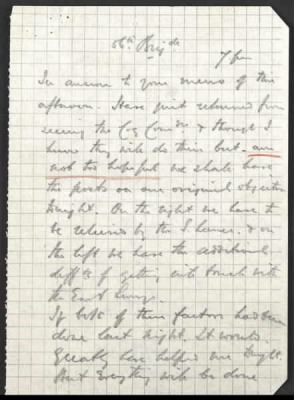 56th Brigde
7 pm
In answer to your memo of this
afternoon. Have just returned from
seeing the Coy Comdrs. & though I
know they will do their best, am
not too hopeful we shall have
the posts on our original objective
tonight. On the right we have to
be relieved by the S. Lancs. & on
the left we have the additional
diffty of getting into touch with
the East Lancs.
If both of these factors had been
done last night. It would
greatly have helped me tonight.
But everything will be done